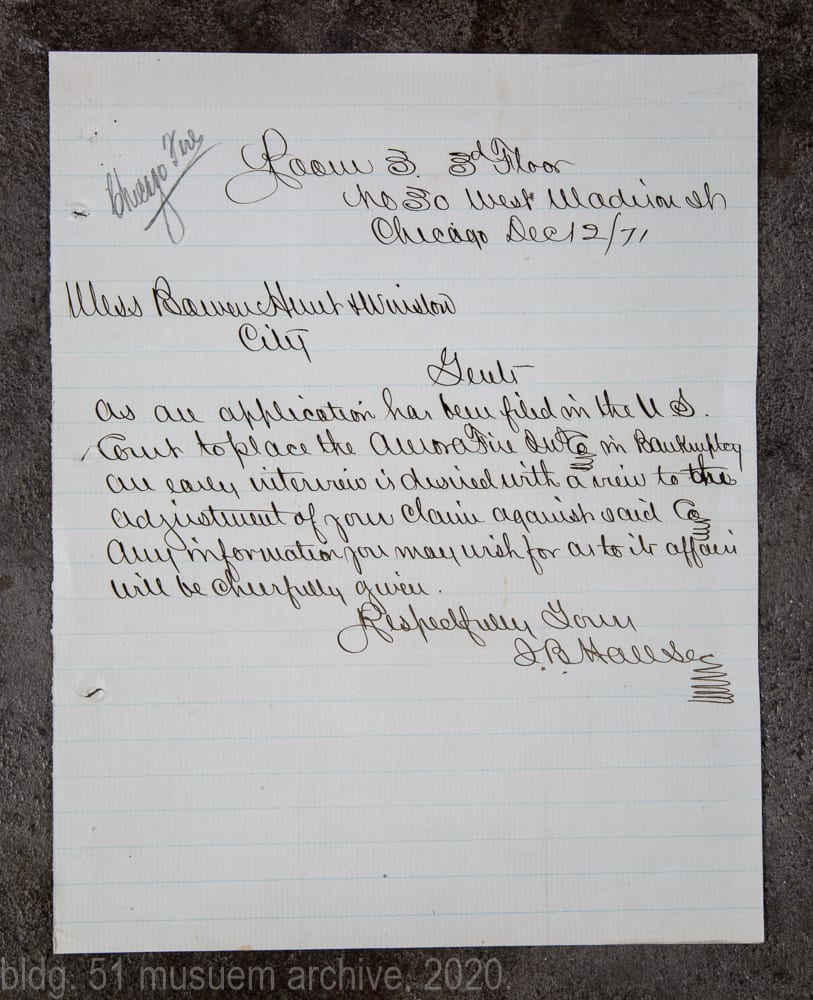 Chicago Fire
Room 3. 3d Floor
No 30 West Madison St
Chicago Dec 12/71
Mess Bowen Hunt & Winslow
City
Gents
As an application has been filed in the U S.
Court to place the Aurora Fire Ins Co in Bankruptcy
an early interview is desired with a view to the
adjustment of your claim against said Co
Any information you may wish for as to its affairs
will be cheerfully given.
Respectfully Yours
J. B. Hall Sec
bldg. 51 musuem archive, 2020.